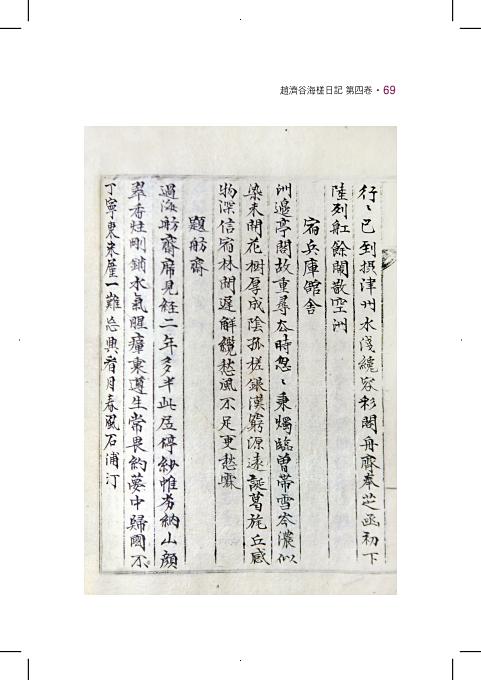 趙濟谷海槎日記 第四卷 • 69
行〻已到摂津州水淺纔容彩閣舟齊奉芝函初下
陸列舡餘闌散空洲
宿兵庫館舍
洲邊亭閣故重尋去時忽〻秉燭臨曽帶雪岑濃似
染未開花樹厚成陰孤槎銀漢窮源遠誕葛旄丘感
物深信宿林間遲解纜愁風不足更愁霖
題舫齋
過海舫齋席見経二年多半此居停紗帷劣納山顔
翠香炷剛銷水氣腥瘴裏遵生常畏約夢中歸國不
丁寧東来崖一難忘興看月春風石浦汀